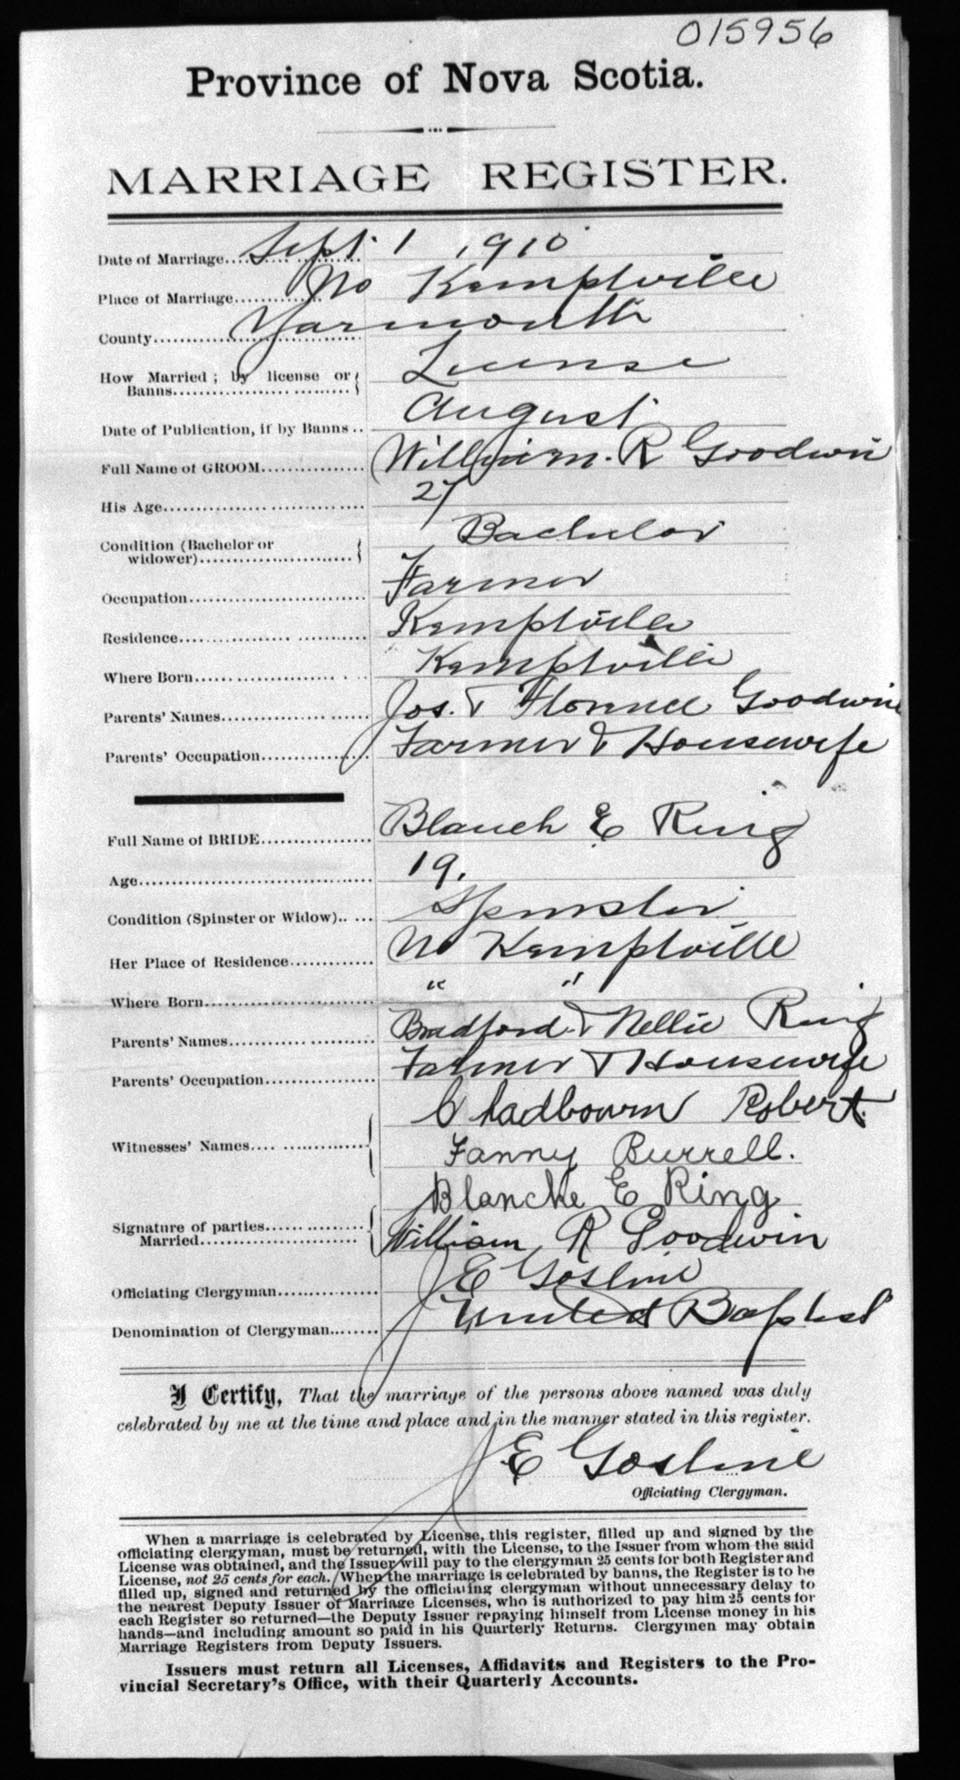 015956
Province of Nova Scotia.
MARRIAGE REGISTER.
Date of Marriage Sept. 1 1910
Place of Marriage No Kemptville
County Yarmouth
How Married; by license or Banns License
Date of Publication, if by Banns August
Full Name of GROOM William. R Goodwin
His Age 27
Condition (Bachelor or widower) Bachelor
Occupation Farmer
Residence Kemptville
Where Born Kemptville
Parents' Names Jos. & Goodwin
Parents' Occupation Farmer & Housewife
Full Name of BRIDE Blanch E Ring
Age 19.
Condition (Spinster or Widow) Spinster
Her Place of Residence No Kemptville
Where Born " "
Parents' Names Bradford & Nellie Ring
Parents' Occupation Farmer & Housewife
Witnesses' Names Chadbourn Robert.
Fanny Burrell.
Signature of parties Married Blanche E Ring
William R Goodwin
Officiating Clergyman J E Gosline
Denomination of Clergyman United Baptist
I Certify, That the marriage of the persons above named was duly
celebrated by me at the time and place and in the manner stated in this register.
J E Gosline
Officiating Clergyman.
When a marriage is celebrated by License, this register, filled up and signed by the
officiating clergyman, must be returned, with the License, to the Issuer from whom the said
License was obtained, and the Issuer will pay to the clergyman 25 cents for both Register and
License, not 25 cents for each. When the marriage is celebrated by banns, the Register is to be
filled up, signed and returned by the officiating clergyman without unnecessary delay to
the nearest Deputy Issuer of Marriage Licenses, who is authorized to pay him 25 cents for
each Register so returned—the Deputy Issuer repaying himself from License money in his
hands—and including amount so paid in his Quarterly Returns. Clergymen may obtain
Marriage Registers from Deputy Issuers.
Issuers must return all Licenses, Affidavits and Registers to the Pro-
vincial Secretary's Office, with their Quarterly Accounts.